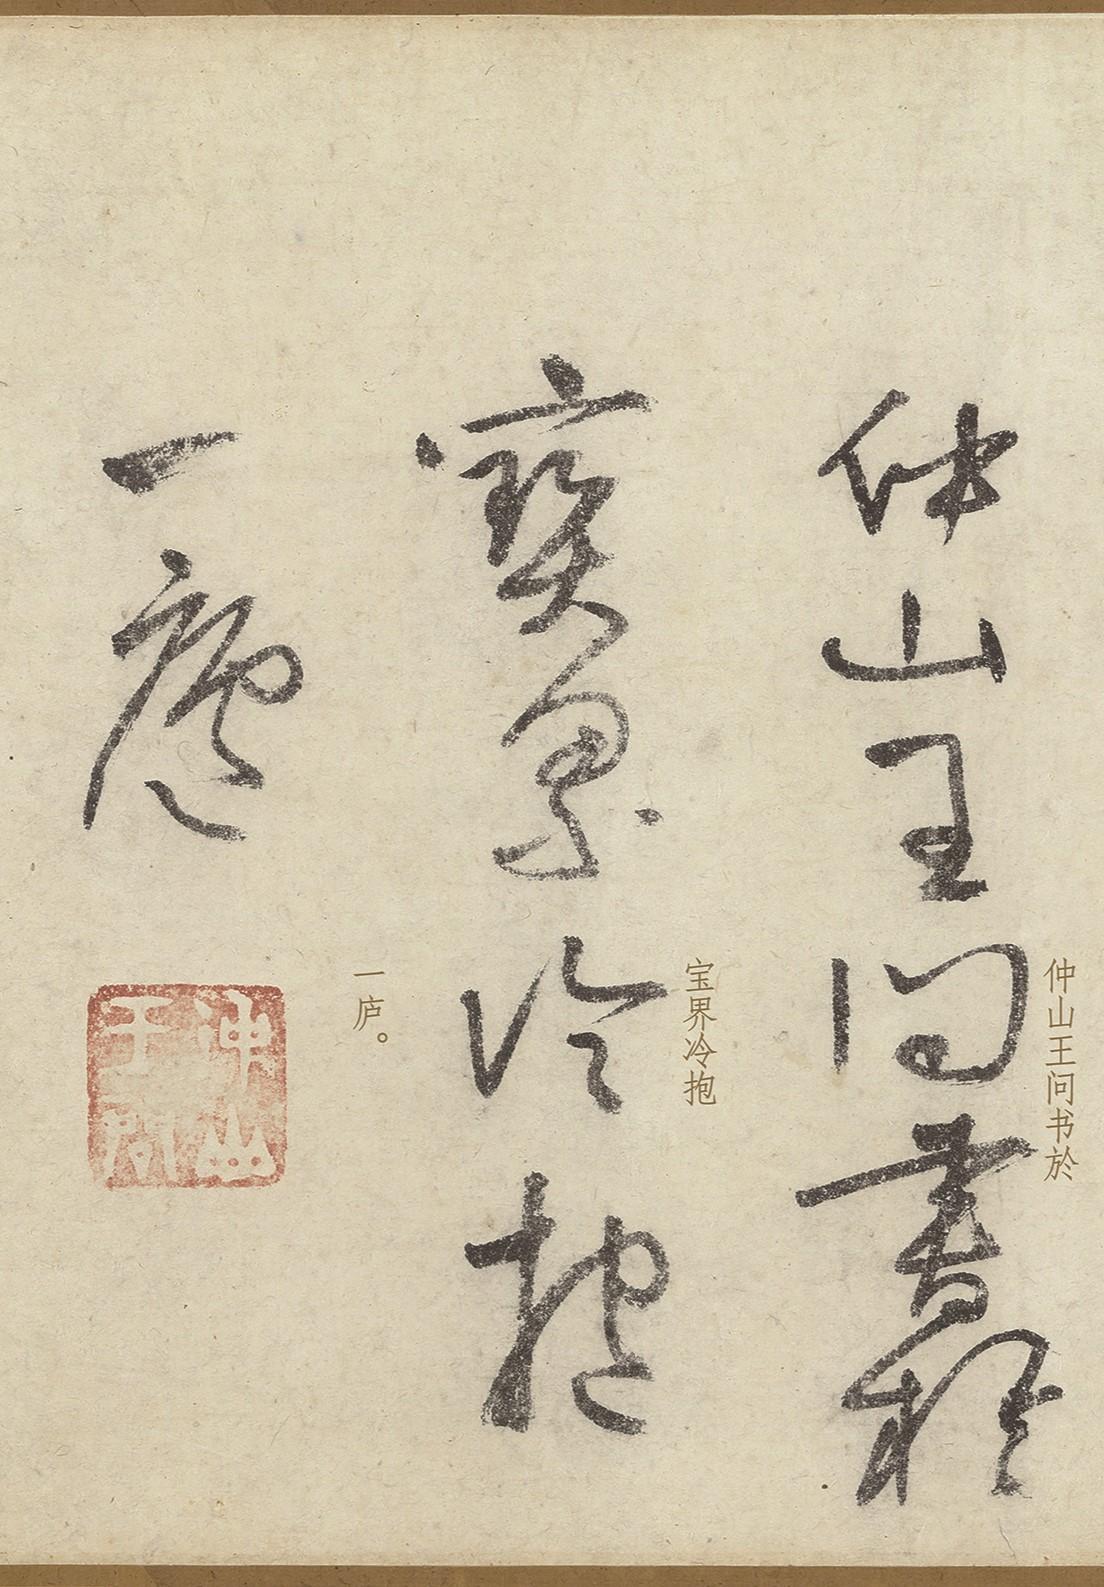 仲山王问书於
仲山王問書於
宝界冷抱
寶界冷抱
一庐。
一廬
仲山王問